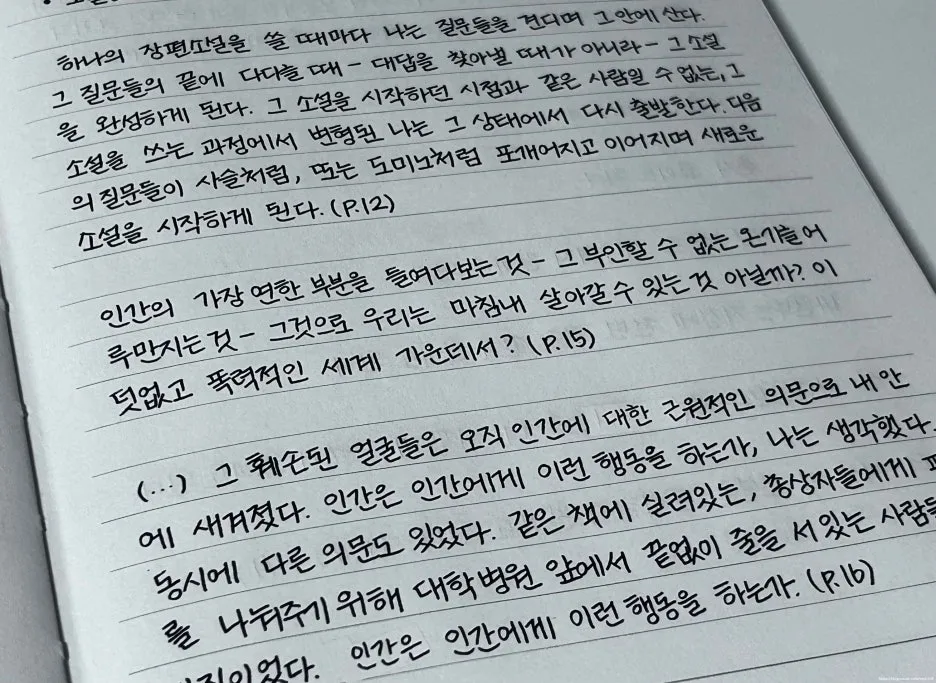 하나의 장편소설을 쓸 때마다 나는 질문들을 견디며 그 안에 산다.
그 질문들의 끝에 다다를 때 - 대답을 찾아낼 때가 아니라 - 그 소설
을 완성하게 된다. 그 소설을 시작하던 시점과 같은 사람일 수 없는, 그
소설을 쓰는 과정에서 변형된 나는 그 상태에서 다시 출발한다. 다음
의 질문들이 사슬처럼, 또는 도미노처럼 포개어지고 이어지며 새로운
소설을 시작하게 된다. (P.12)
인간의 가장 연한 부분을 들여다보는 것 - 그 부인할 수 없는 온기를 어
루만지는 것 - 그것으로 우리는 마침내 살아갈 수 있는 것 아닐까? 이
덧없고 폭력적인 세계 가운데서? (P.15)
(...) 그 훼손된 얼굴들은 오직 인간에 대한 근원적인 의문으로 내 안
에 새겨졌다. 인간은 인간에게 이런 행동을 하는가, 나는 생각했다.
동시에 다른 의문도 있었다. 같은 책에 실려있는, 총상자들에게
를 나눠주기 위해 대학병원 앞에서 끝없이 줄을 서 있는 사람들
이었다. 인간은 인간에게 이런 행동을 하는가. (P.16)